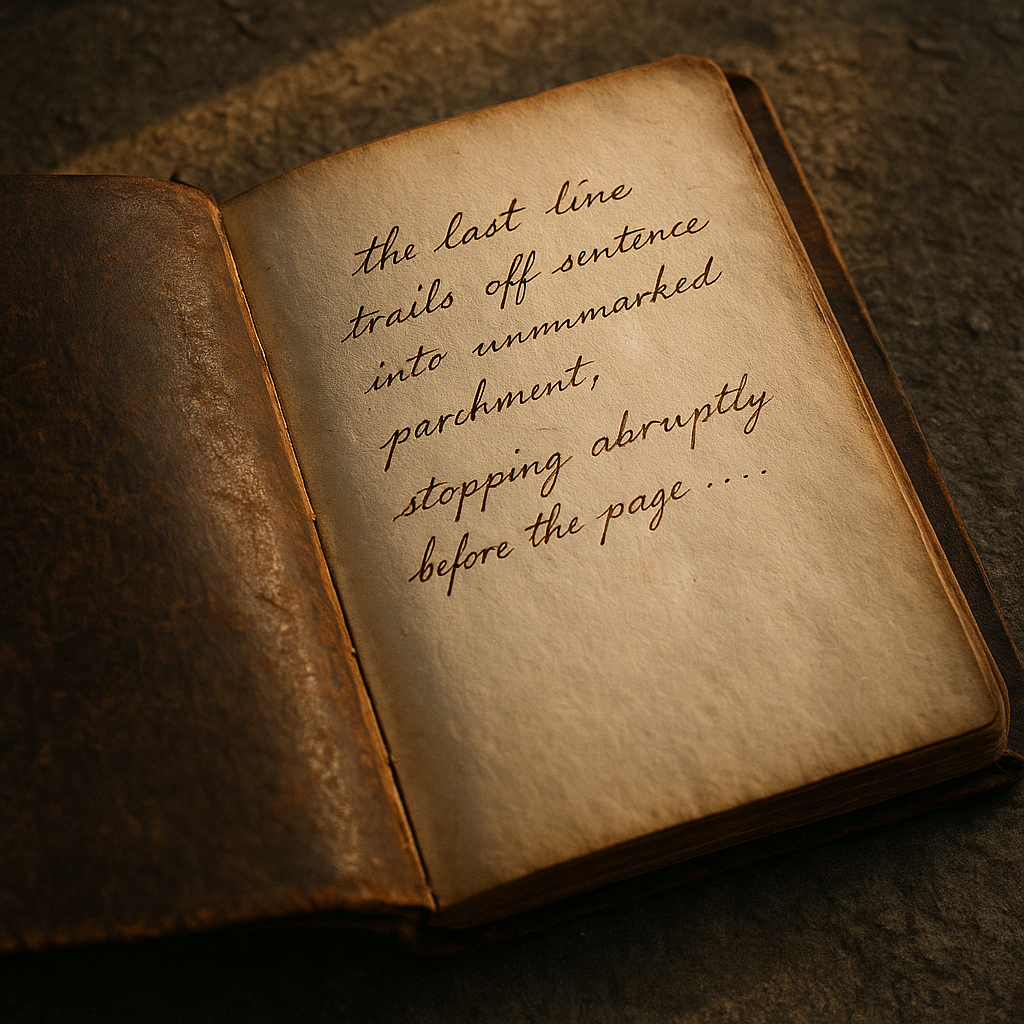 the last line
trails off sentence
into unmmarked
parchment,
stopping abruptly
before the page ....